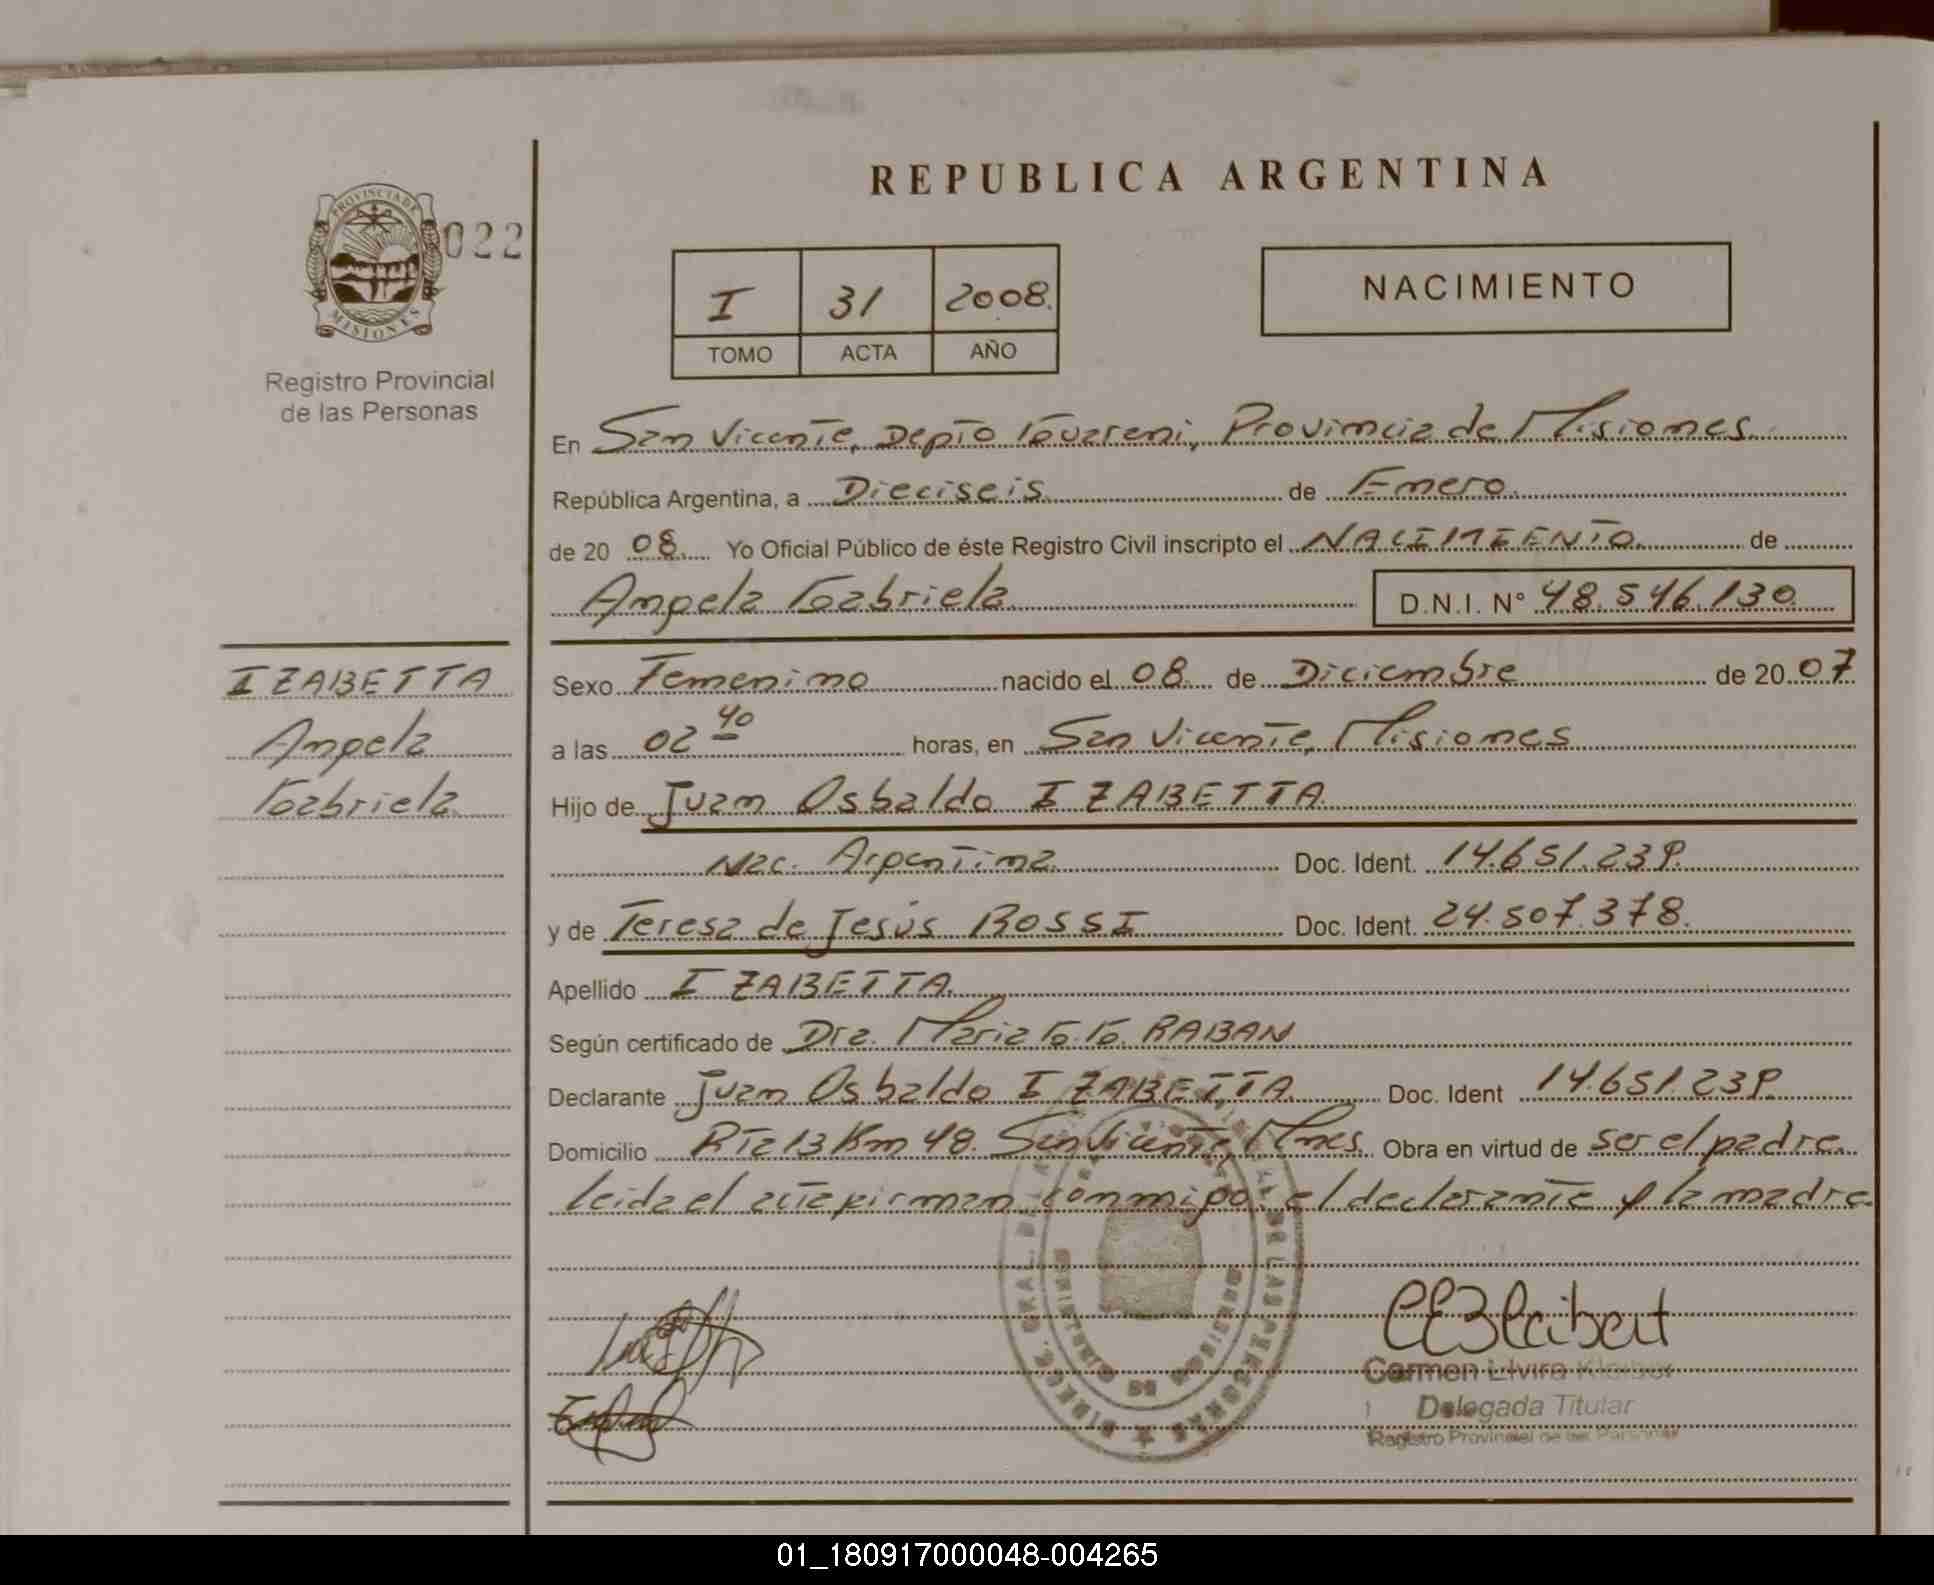 REPUBLICA ARGENTINA
PROVINCIA DE
MISIONES
022
Registro Provincial
de las Personas
I 31 2008.
TOMO ACTA AÑO
NACIMIENTO
En San Vicente, Depto Guarani, Provincia de Misiones
República Argentina, a Dieciseis de Enero.
de 20 08. Yo Oficial Público de éste Registro Civil inscripto el NACIMIENTO de
Angela Gabriela D.N.I. Nº 48.546.130
IZABETTA
Angela
Gabriela
Sexo Femenino nacido el 08 de Diciembre de 20 07
a las 02 40 horas, en San Vicente, Misiones
Hijo de Juan Osbaldo IZABETTA
Nac. Argentina Doc. Ident. 14.651.239.
y de Teresa de Jesús ROSSI Doc. Ident. 24.507.378.
Apellido IZABETTA.
Según certificado de Dra. Maria G. G. RABAN
Declarante Juan Osbaldo IZABETTA. Doc. Ident 14.651.239.
Domicilio RTa 13 Km 48. San Vicente, Mnes. Obra en virtud de ser el padre.
leida el acta firman conmigo el declarante y la madre.
Carmen Elvira Kleiber
Delegada Titular
Registro Provincial de las Personas
01_180917000048-004265